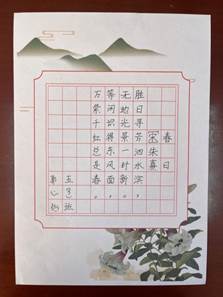 春日
宋 朱熹
胜日寻芳泗水滨，
无边光景一时新。
等闲识得东风面，
万紫千红总是春。